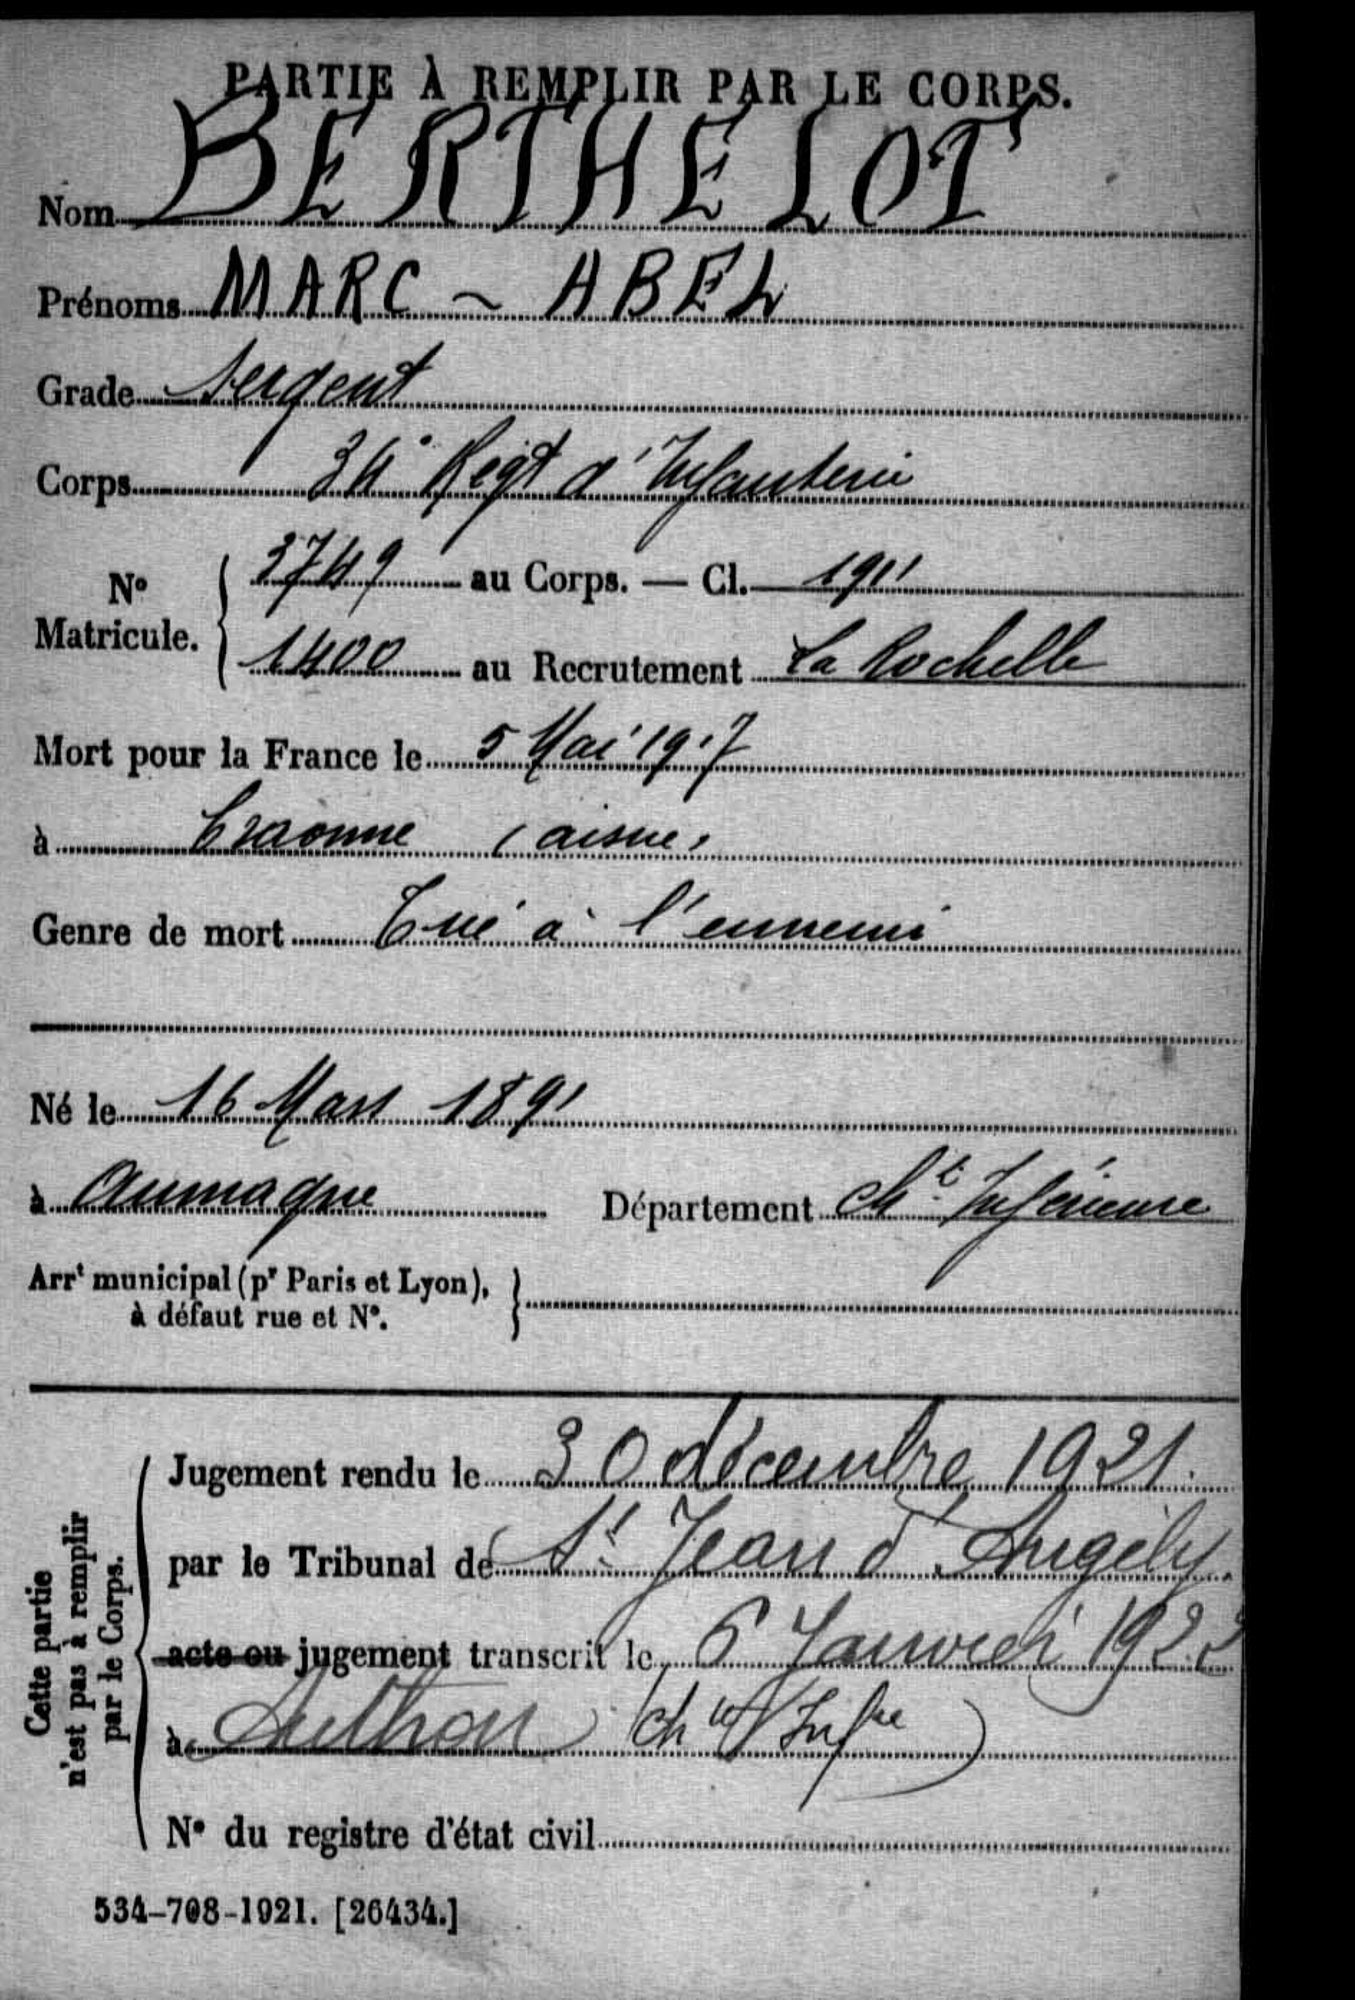 PARTIE À REMPLIR PAR LE CORPS.
Nom BERTHELOT
Prénoms MARC - ABEL
Grade Sergent
Corps 34e Régt d'Infanterie
No Matricule. 3749 au Corps. — Cl. 1911
1400 au Recrutement La Rochelle
Mort pour la France le 5 Mai 1917
à Craonne (aisne)
Genre de mort Tué à l'ennemi
Né le 16 Mars 1891
à Aumagne Département Cht Inférieure
Arrt municipal (pr Paris et Lyon),
à défaut rue et No.
Cette partie
n'est pas à remplir
par le Corps.
Jugement rendu le 30 décembre 1921.
par le Tribunal de St Jean d'Angély.
acte ou jugement transcrit le 6 Janvier 1922
à Authon (Chte Infre)
No du registre d'état civil
534-708-1921. [26434.]